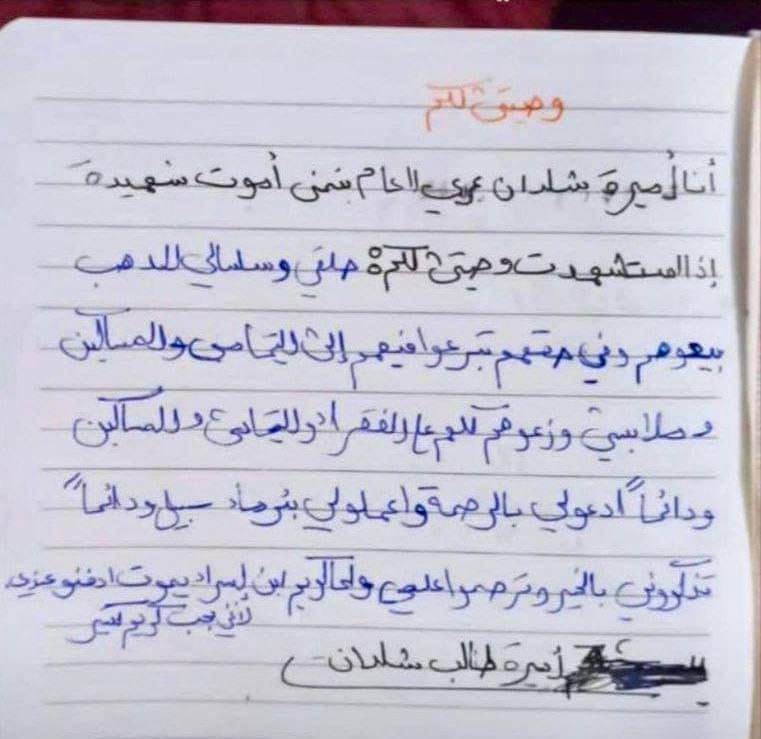 وصيتي لكم
أنا أميرة شلدان عمري 11 عام بتمنى أموت شهيدة
إذا استشهدت وصيتي لكم حلقي وسلسالي الدهب
بيعوهم وفي حقهم تبرعوا فيهم إلى اليتامى والمساكين
وملابسي وزعوهم كلهم عل الفقراء واليتامى والمساكين
ودائماً ادعولي بالرحمة واعملولي بئر ماء سبيل ودائماً
تذكروني بالخير وترحموا علي ولما كريم ابن إسراء يموت ادفنو عندي
لأني بحب كريم كتير
أميرة طالب شلدان